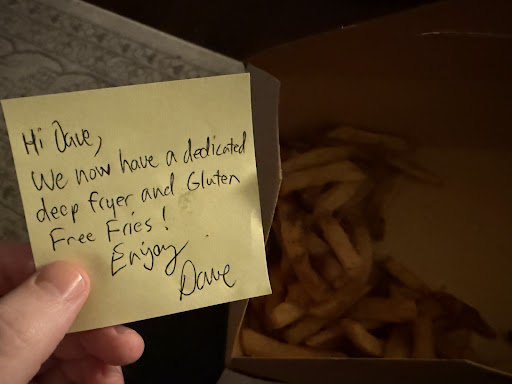 Hi Dave,
We now have a dedicated
deep fryer and Gluten
Free Fries!
Enjoy
Dave